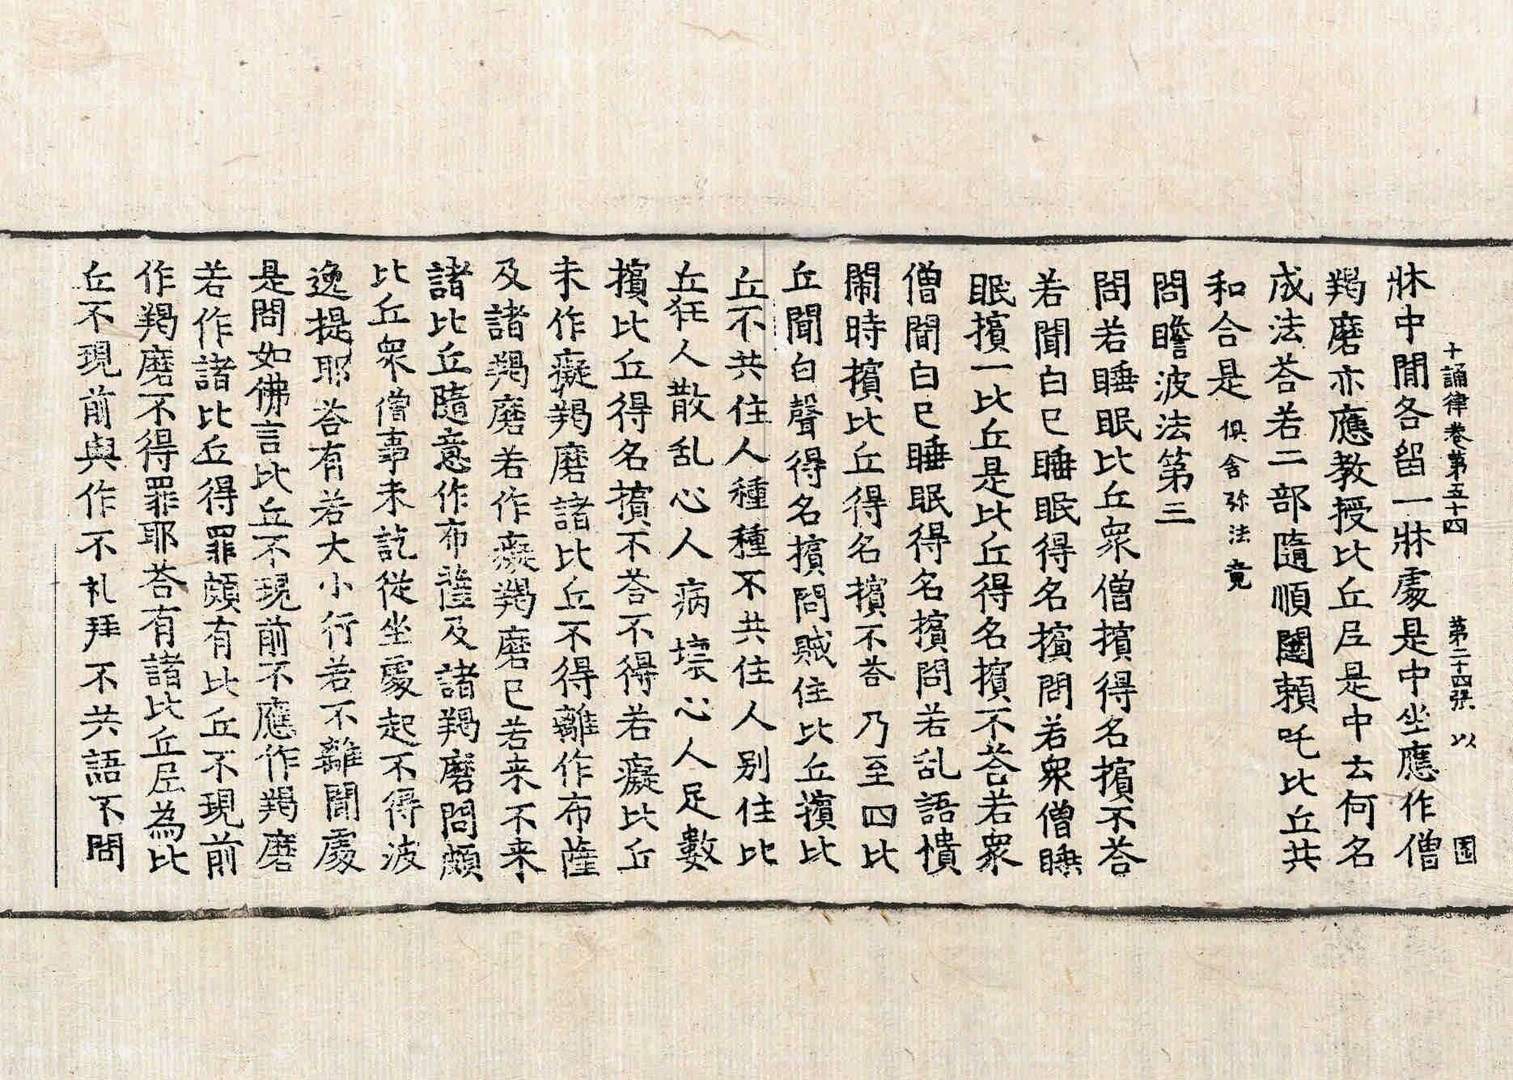 十誦律卷第五十四 第二十四張 以 圖
牀中閒各留一牀處是中坐應作僧
羯磨亦應教授比丘尼是中去何名
成法荅若二部隨順闥賴吒比丘共
和合是 俱舍弥法竟
問瞻波法第三
問若睡眠比丘衆僧擯得名擯不荅
若聞白已睡眠得名擯問若衆僧睡
眠擯一比丘是比丘得名擯不荅若衆
僧聞白已睡眠得名擯問若乱語憒
閙時擯比丘得名擯不荅乃至四比
丘聞白聲得名擯問賊住比丘擯比
丘不共住人種種不共住人别住比
丘狂人散乱心人病壞心人足數
擯比丘得名擯不荅不得若癡比丘
未作癡羯磨諸比丘不得離作布薩
及諸羯磨若作癡羯磨已若来不来
諸比丘隨意作布薩及諸羯磨問頗
比丘衆僧事未訖從坐處起不得波
逸提耶荅有若大小行若不離聞處
是問如佛言比丘不現前不應作羯磨
若作諸比丘得罪頗有比丘不現前
作羯磨不得罪耶荅有諸比丘尼為比
丘不現前與作不礼拜不共語不問